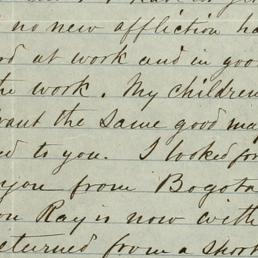 no new affliction ha
d at work and in goo
the work. My children
want the same good ma
ed to you. I looked for
you from Bogota
on Ray is now with
returned from a short